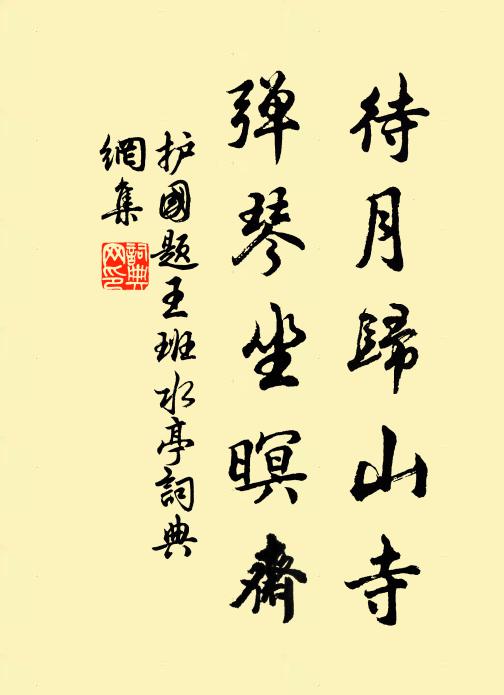 待月歸山寺
弹琴坐暝齋
护國题王班水亭詞典
網集
詞典
网印